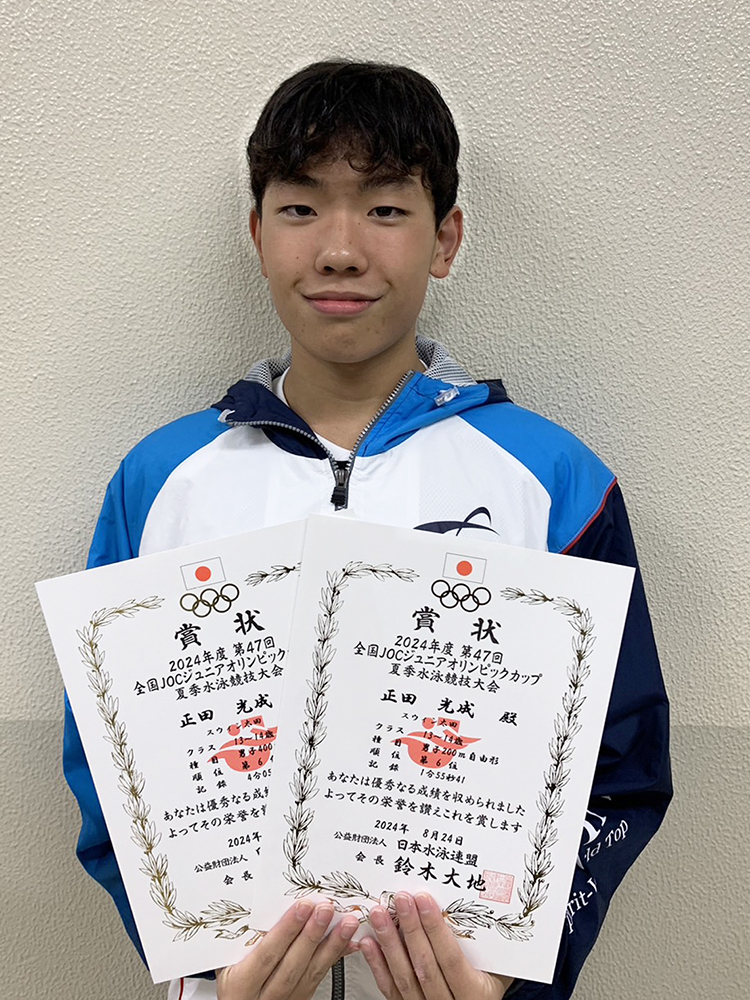 賞状
2024年度 第47回
全国JOCジュニアオリンピック
夏季水泳競技大会
正田 光成
スウィン太田
クラス 13〜14歳
種目 男子400
順位 第6
記録 4分0
あなたは優秀なる成績
よってその栄誉を讃
2024年
公益財団法人
会長
賞状
2024年度 第47回
全国JOCジュニアオリンピックカップ
夏季水泳競技大会
正田 光成 殿
スウィン太田
クラス 13〜14歳
種目 男子200m自由形
順位 第6位
記録 1分55秒41
あなたは優秀なる成績を収められました
よってその栄誉を讃えこれを賞します
2024年 8月24日
公益財団法人 日本水泳連盟
会長 鈴木大地
Top